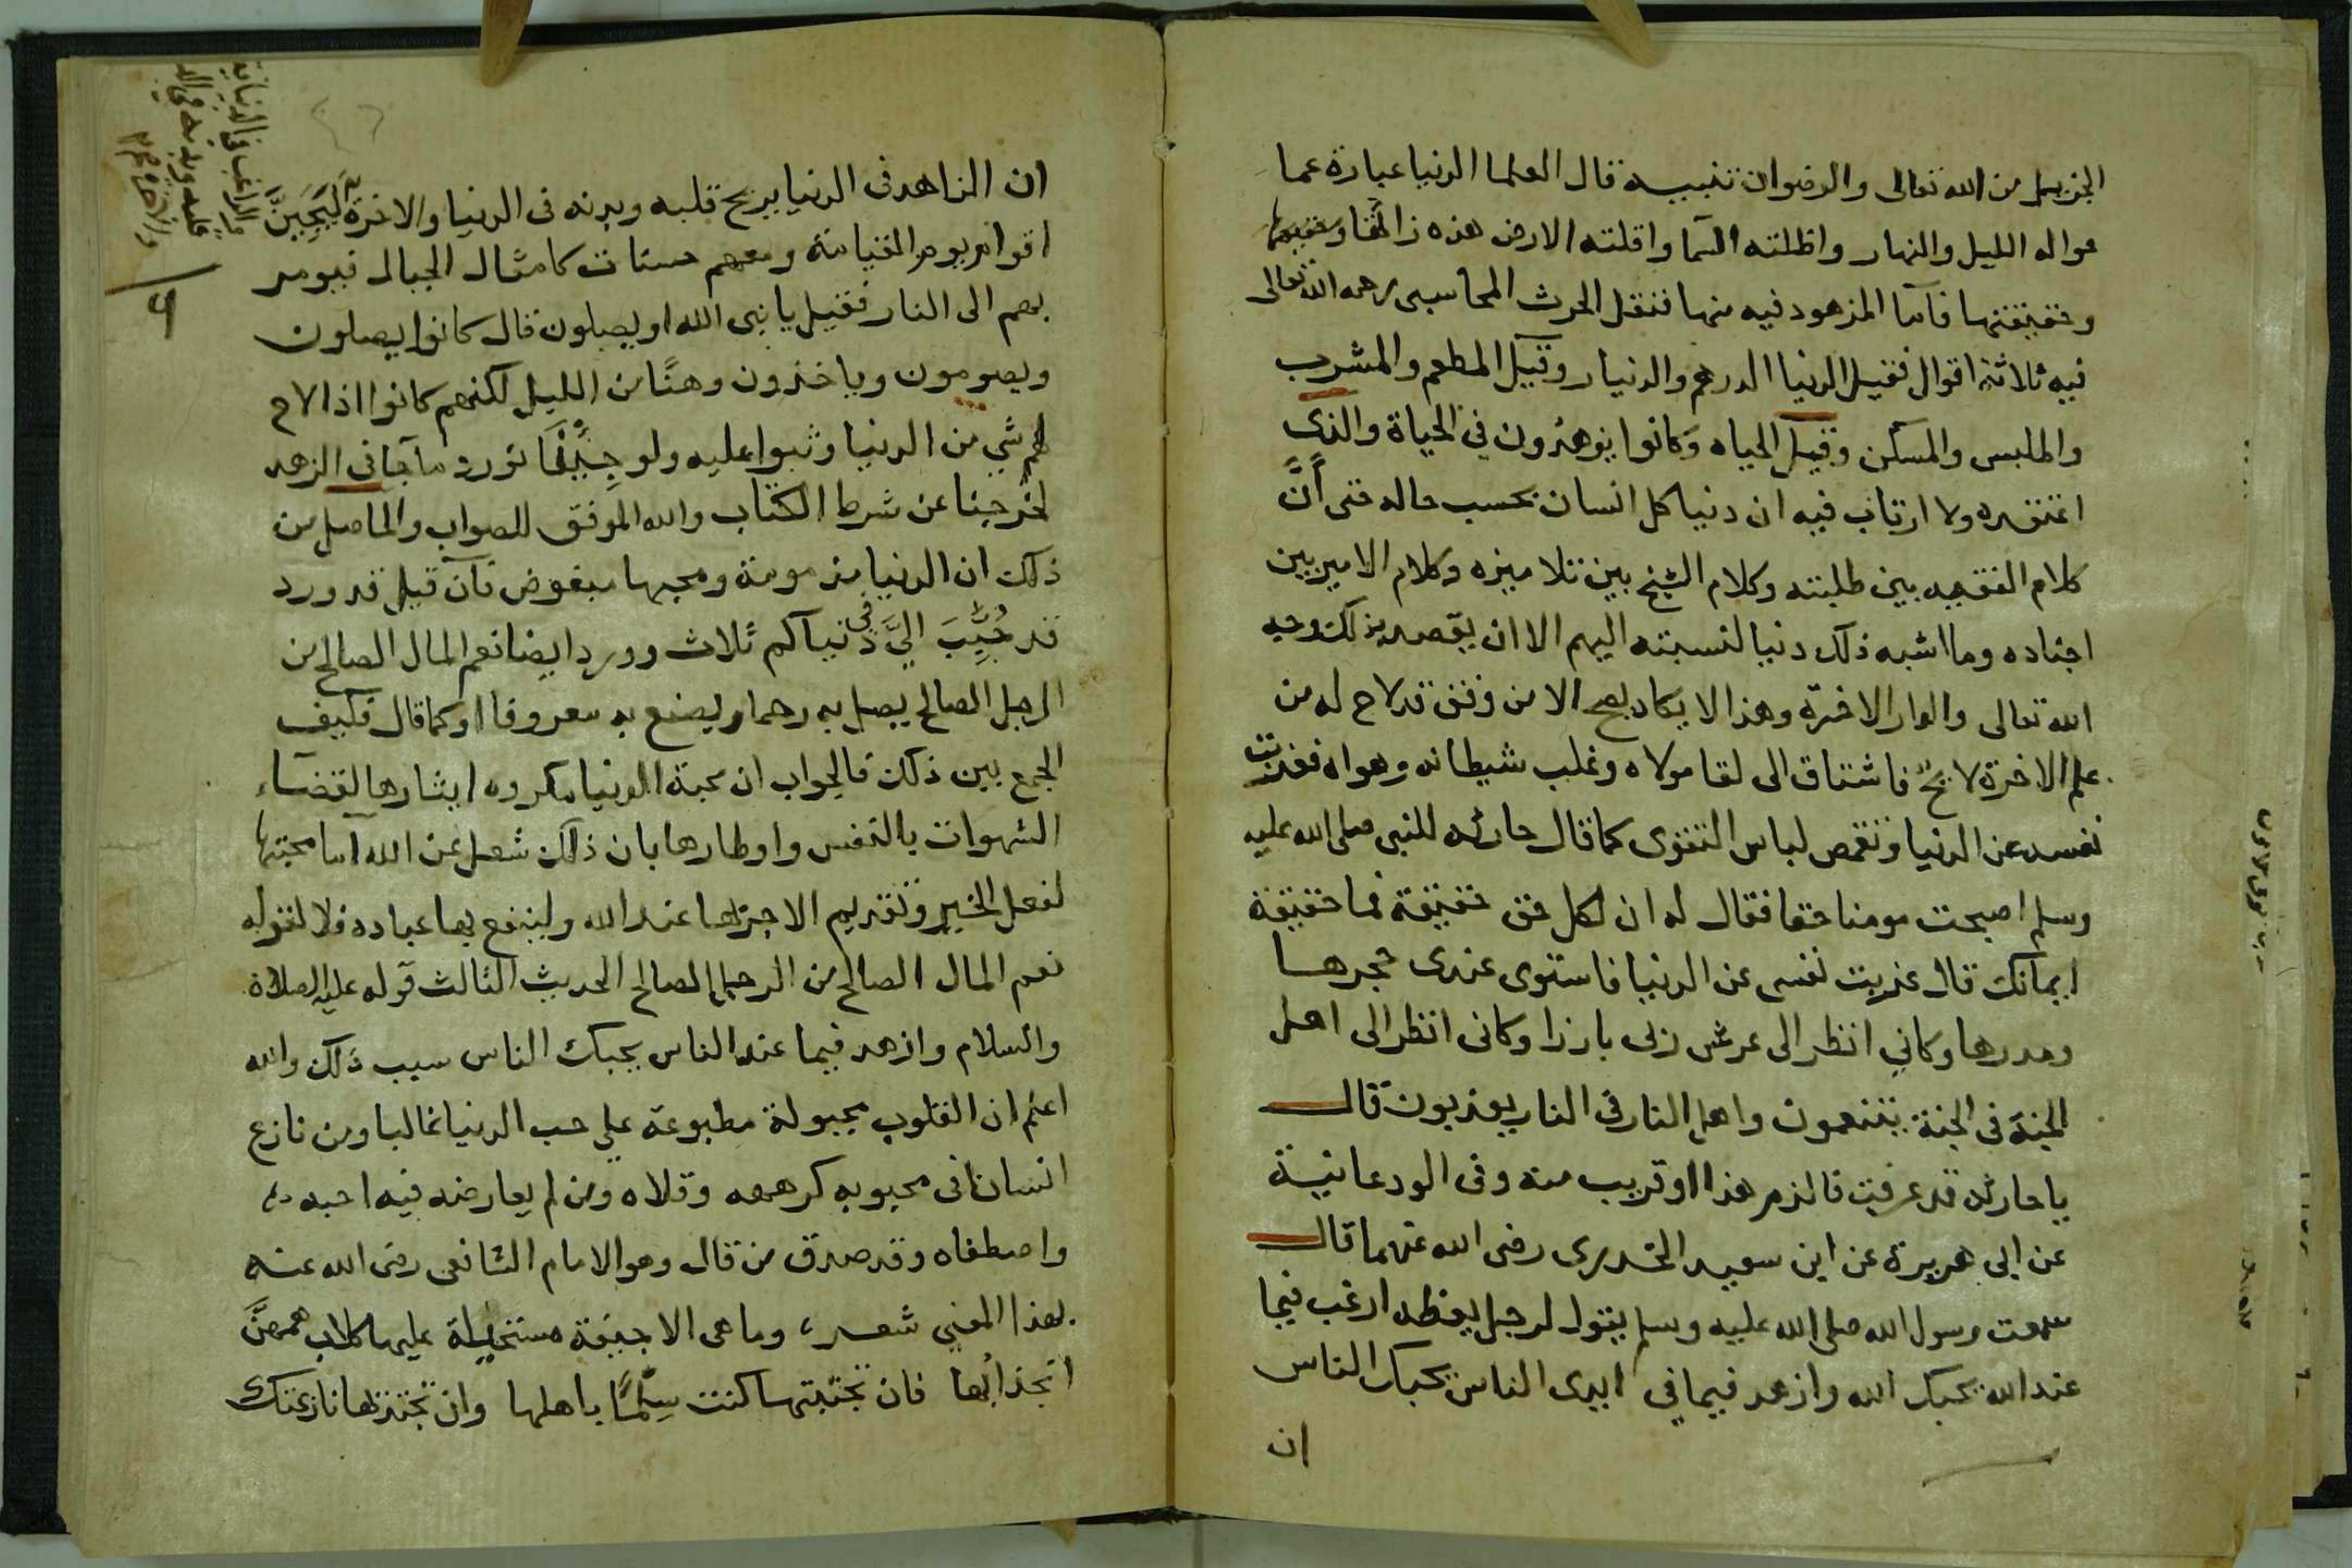 الجزيل من الله تعالى والرضوان تنبيه قال العلما الدنيا عبارة عما
حواله الليل والنهار واظلته السما واقلته الارض هذه ذاتها
وحقيقتها فاما المزهود فيه منها فنقل الحرث المحاسبى رحمه الله تعالى
فيه ثلاثة اقوال فقيل الدنيا الدرهم والدنيار وقيل المطعم والمشرب
والملبس والمسكن وقيل الحياه وكانوا يزهدون في الحياة والذى
اعتقده ولا ارتاب فيه ان دنيا كل انسان بحسب حاله حتى أنَّ
كلام الفقيه بين طلبته وكلام الشيخ بين تلاميزه وكلام الامير بين
اجناده وما اشبه ذلك دنيا لنسبته اليهم الا ان يقصد بذلك وجه
الله تعالى والدار الاخرة وهذا لا يكاد يصح الا من وفق قد لاح له من
علم الاخرة لايح فاشتاق الى لقا مولاه وغلب شيطانه وهواه فعزبت
نفسه عن الدنيا وتقمص لباس التقوى كما قال حارثه للنبى صلى الله عليه
وسلم اصبحت مومنا حقا فقال له ان لكل حق حقيقة فما حقيقة
ايمانك قال عزبت نفسى عن الدنيا فاستوى عندى حجرها
ومدرها وكاني انظر الى عرش ربى بارزا وكانى انظر الى اهل
الجنة فى الجنة يتنعمون واهل النار فى النار يعذبون قال
ياحارثه قد عرفت فالزم هذا او قريب منه وفى الودعانية
عن ابى هريرة عن ابن سعيد الخدرى رضى الله عنهما قال
سمعت رسول الله صلى الله عليه وسلم يقول لرجل يعظه ارغب فيما
عند الله يحبك الله وازهد فيما في ايدى الناس يحبك الناس
ان
ان الزاهد فى الدنيا يريح قلبه وبدنه فى الدنيا والاخرة ليَجِيَنَّ
اقوام يوم القيامة ومعهم حسنات كامثال الجبال فيومر
بهم الى النار فقيل يا نبى الله او يصلون قال كانوا يصلون
ويصومون وياخذون وهنًا من الليل لكنهم كانوا اذا لاح
لهم شي من الدنيا وثبوا عليه ولو جِيْنَا نورد ما جا فى الزهد
لخرجنا عن شرط الكتاب والله الموفق للصواب والحاصل من
ذلك ان الدنيا مذمومة ومحبها مبغوض فان قيل قد ورد
قد حُبِّبَ اليَّ في دنياكم ثلاث وورد ايضا نعم المال الصالح من
الرجل الصالح يصل به رحما ويصنع به معروفا او كما قال فكيف
الجمع بين ذلك فالجواب ان محبة الدنيا مكروه ايثارها لقضاء
الشهوات بالنفس واوطارها بان ذلك شغل عن الله اما محبتها
لفعل الخير وتقديم الاجر بها عند الله ولينفع بها عباده فلا لقوله
نعم المال الصالح من الرجل الصالح الحديث الثالث قوله عليه الصلاة
والسلام وازهد فيما عند الناس يحبك الناس سبب ذلك والله
اعلم ان القلوب مجبولة مطبوعة على حب الدنيا غالبا ومن نازع
انسانا فى محبوبه كرهه وقلاه ومن لم يعارضه فيه احبه
واصطفاه وقد صدق من قال وهو الامام الشافعى رضى الله عنه
بهذا المعني شعر، وما هى الا جيفة مستحيلة عليها كلاب همهنَّ
اجتذابُها فان تجتنبها كنت سِلْمًا باهلها وان تجتذبها نازعتك